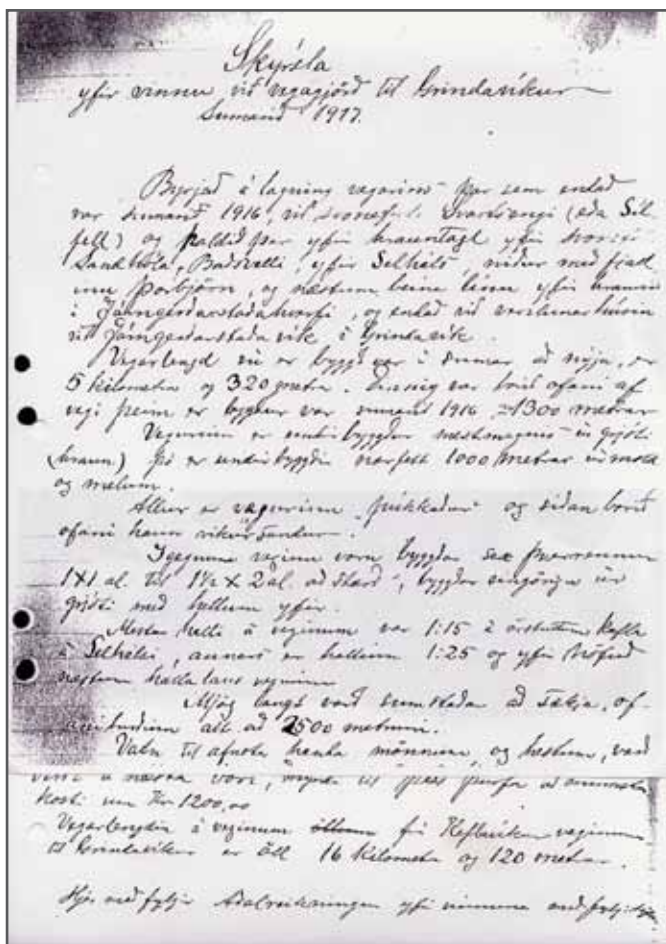 Skýrsla
yfir vinnu við vegagjörð til Grindavíkur
Sumarið 1917.
Byrjað á lagning vegarins þar sem endað
var sumarið 1916, við svonefnt Svartsengi (eða Sil-
fell) og haldið þar yfir hrauntagl yfir
Sandhóla, Baðsvelli, yfir Selháls, niður með fjall
inu Þorbjörn, og næstum beina línu yfir hraunin
í Járngerðarstaðahverfi, og endað við verzlunarhúsin
við Járngerðarstaðavík í Grindavík.
Vegarlengd sú er byggð var í sumar að nýju, er
5 kilometra og 320 metra. Einnig var borið ofaní af
vegi þeim er byggður var sumarið 1916 = 1300 metrar
Vegurinn er undirbyggður mestmegnis úr grjóti
(hraun) þó er undirbygging nærfelt 1000 metrar úr mold
og melum.
Allur er vegurinn "púkkaður" og síðan borið
ofaní hann
Igegnum veginn voru byggðar sex þverrennur
1x1 al. til 1½ x 2 al. að stærð, byggðar úr
grjóti með hellum yfir.
Mestur halli á veginum var 1:15 á örstuttum kafla
á Selhálsi, annars er hallinn 1:25 og yfir höfuð
næstum hallalaus vegurinn
Mjög langt varð sumstaðar að sækja of-
aníburðinn alt að 2500 metrum.
Vatn til afnota handa mönnum og hestum, varð
á næsta vori, til þess þurfa að
kosti um Kr 1200,00
Vegarlengdin á veginum frá Keflavíkur veginum
til Grindavíkur er öll 16 kilometra og 120 metrar.
Hjer með fylgir Aðalreikningur yfir vinnuna